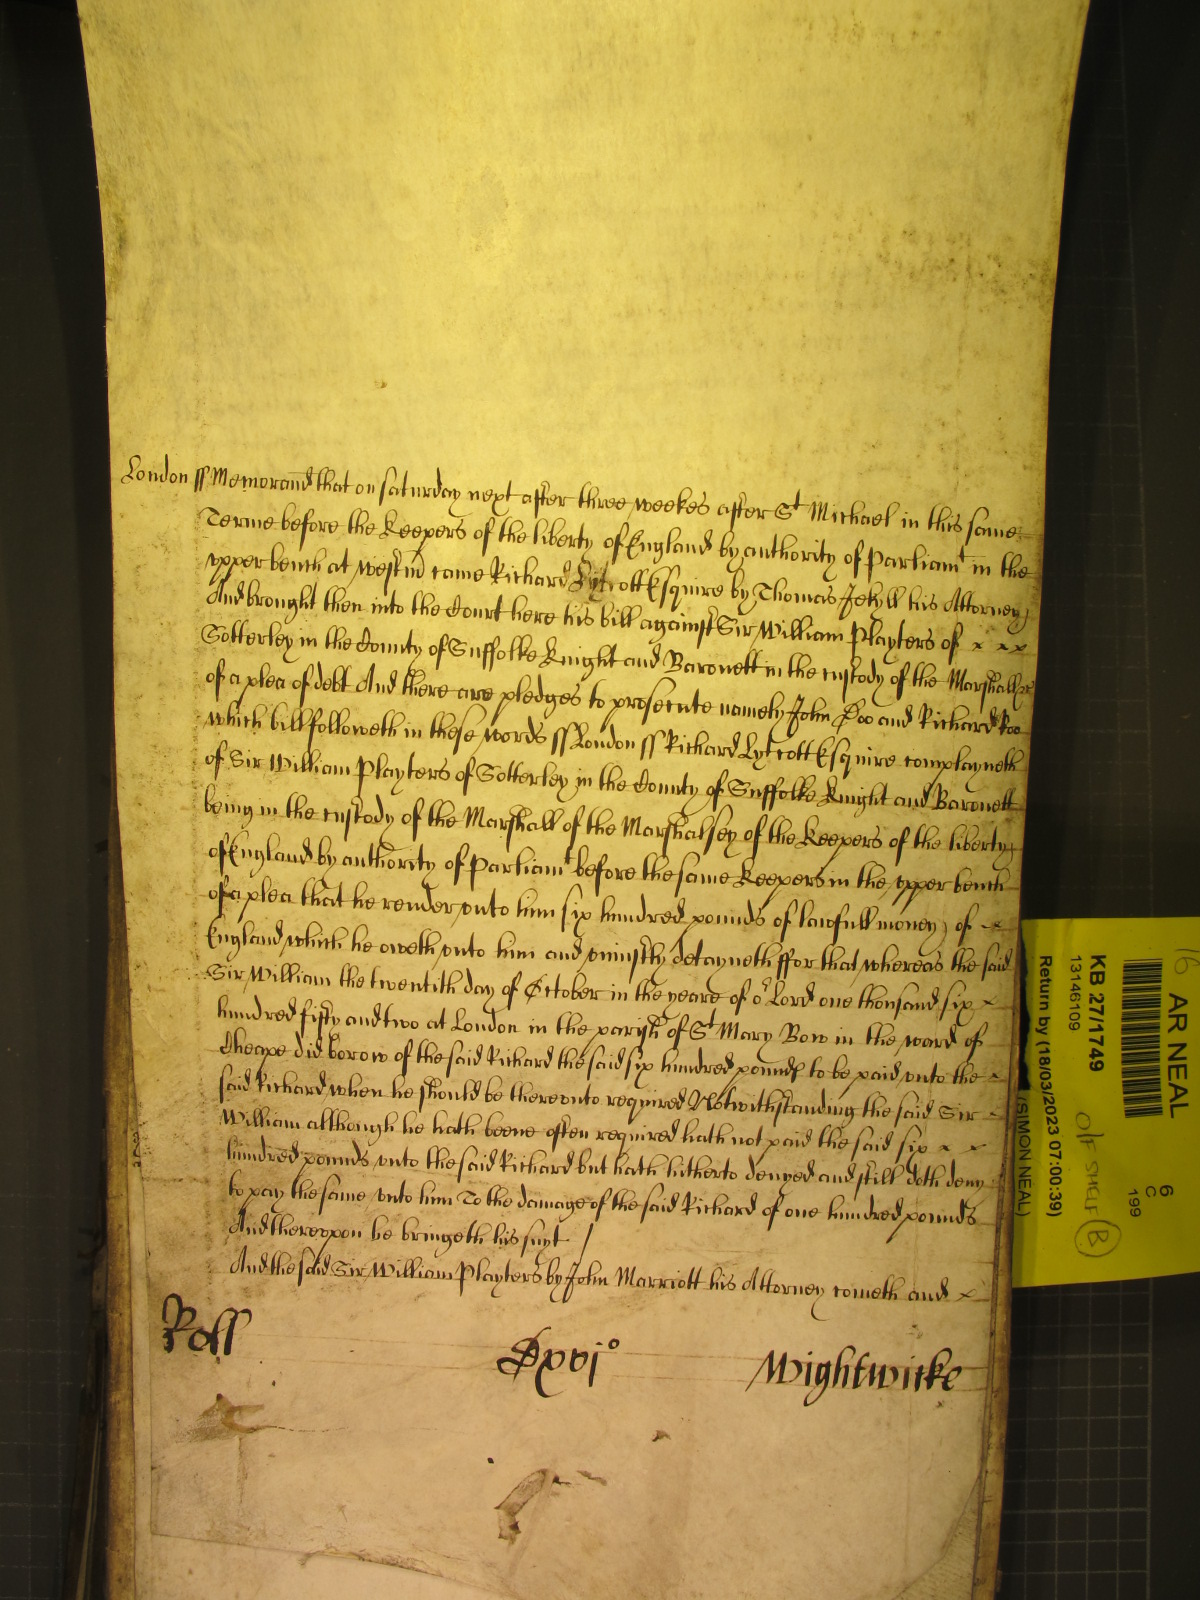 London ss Memorand that on Saturday next after three weekes after St Michael in this same
Terme before the Keepers of the liberty of England by authority of Parliamt in the
vpper bench at westm came Richard Lytcott Esquire by Thomas Jekyll his Attorney
And brought then into the Court here his bill against Sir William Playters of x x x
Sotterley in the County of Suffolke Knight and Baronett in the custody of the Marshall &c
of a plea of debt And there are pledges to prosecute namely John Doo and Richard Roo
which bill followeth in these words ss London ss Richard Lytcott Esquire complayneth
of Sir William Playters of Sotterley in the County of Suffolke Knight and Baronett
being in the custody of the Marshall of the Marshalsey of the Keepers of the liberty
of England by authority of Parliamt before the same Keepers in the vpper bench
of a plea that he render vnto him six hundred pounds of lawfull money of
England which he oweth vnto him and vniustly detayneth ffor that whereas the said
Sir William the twentith day of October in the yeare of or Lord one thousand six
hundred fifty and two at London in the parish of St Mary Bow in the ward of
Cheape did borow of the said Richard the said six hundred pounds to be paid vnto the
said Richard when he should be therevnto required Notwithstanding the said Sir
William although he hath beene often required hath not paid the said six x x
hundred pounds vnto the said Richard but hath hitherto denyed and still doth deny
to pay the same vnto him To the damage of the said Richard of one hundred pounds
And therevpon he bringeth his suyt /
And the said Sir William Playters by John Marriott his Attorney cometh and x
Roll
Dxvjo
Wightwicke
AR NEAL
KB 27/1749
13146109
Return by (18/03/2023 07:00:39)
(SIMON NEAL)
6
C
199
O/F SHELF
B